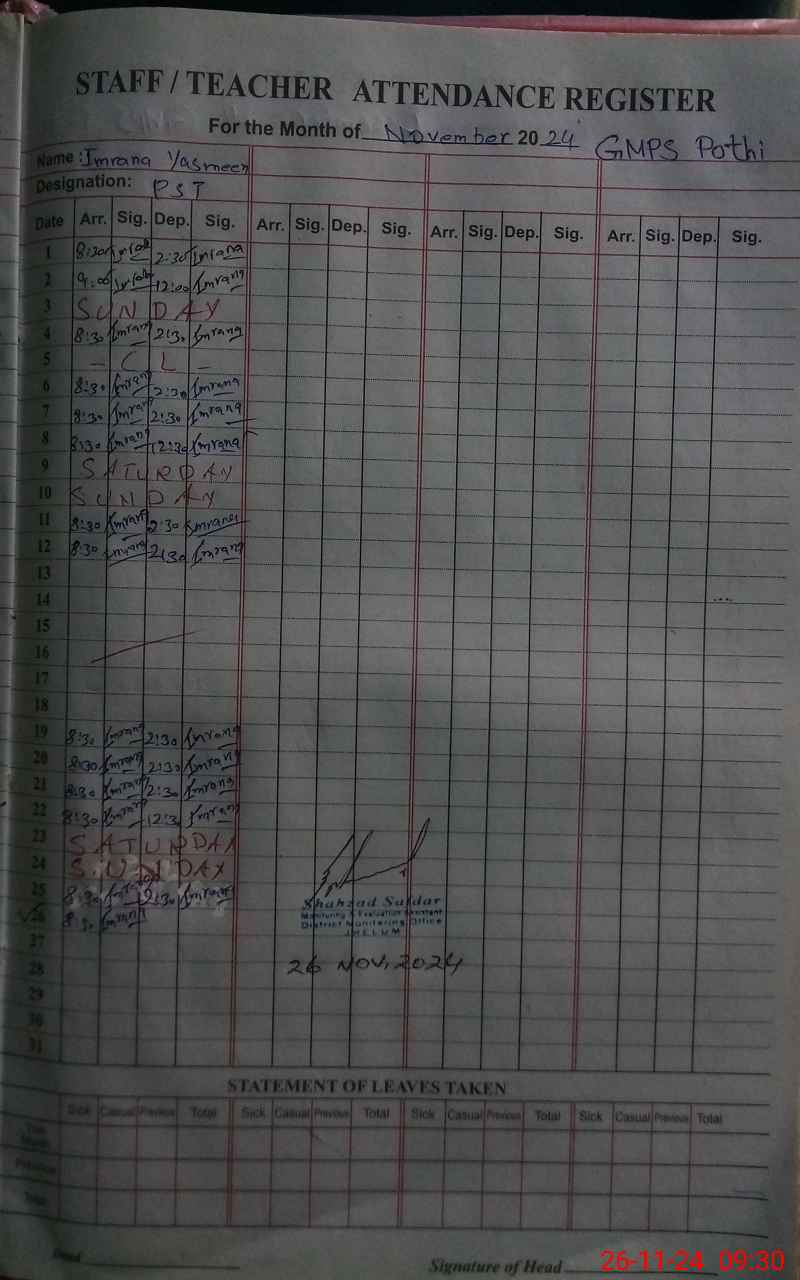 STAFF / TEACHER ATTENDANCE REGISTER
For the Month of November 2024 GMPS Pothi
Name : Imrana Yasmeen
Designation: PST
Date Arr. Sig. Dep. Sig. Arr. Sig. Dep. Sig. Arr. Sig. Dep. Sig. Arr. Sig. Dep. Sig.
1 8:30 2:30 Imrana
2 9:00 12:00 Imrana
3 SUNDAY
4 8:30 Imrana 2:30 Imrana
5 - C L -
6 8:30 Imrana 2:30 Imrana
7 8:30 Imrana 2:30 Imrana
8 8:30 Imrana 12:30 Imrana
9 SATURDAY
10 SUNDAY
11 8:30 Imrana 2:30 Imrana
12 8:30 Imrana 2:30 Imrana
13
14
15
16
17
18
19 8:30 Imrana 2:30 Imrana
20 8:30 Imrana 2:30 Imrana
21 8:30 Imrana 2:30 Imrana
22 8:30 Imrana 12:3 Imrana
23 SATURDAY
24 SUNDAY
25 8:30 Imrana 2:30 Imrana
26 8:30 Imrana
Shahzad Safdar
Monitoring & Evaluation Assistant
District Monitoring Office
JHELUM
27
28 26 NOV, 2024
29
30
31
STATEMENT OF LEAVES TAKEN
Sick Casual Previous Total Sick Casual Previous Total Sick Casual Previous Total Sick Casual Previous Total
This Month
Previous
Total
Signature of Head
26-11-24 09:30